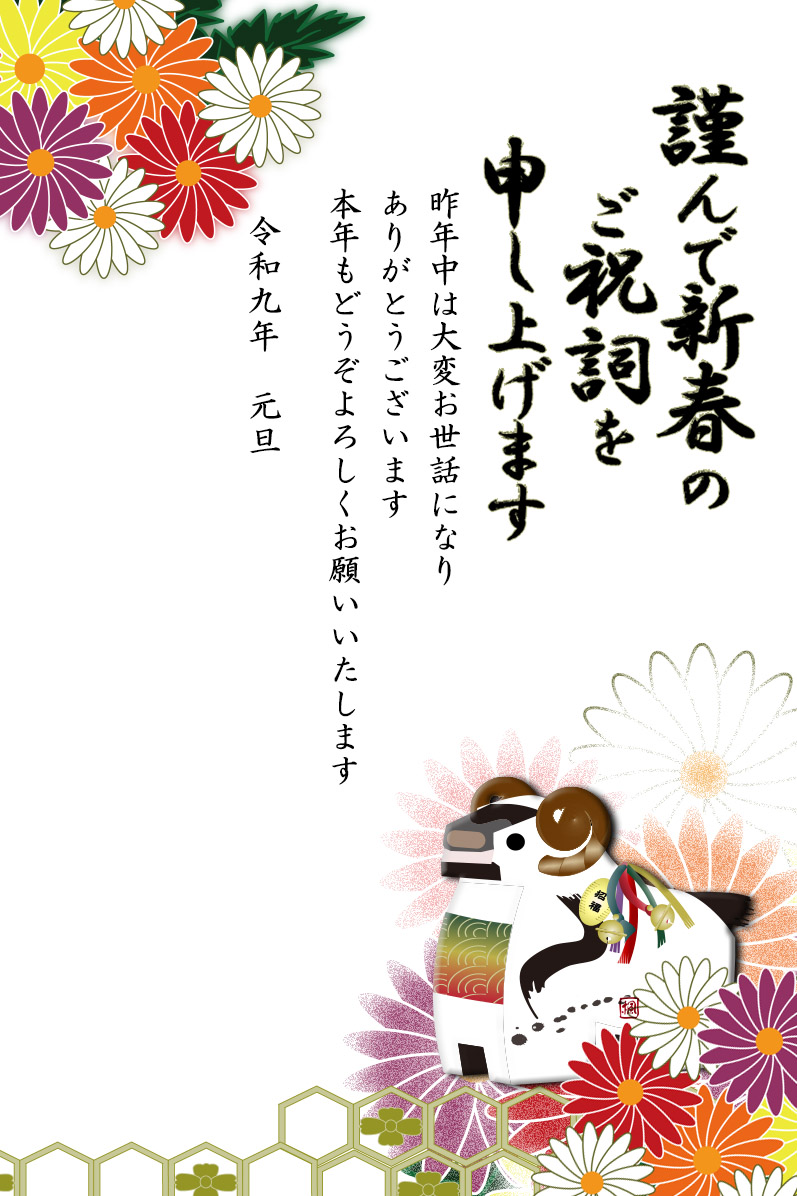 謹んで新春の
ご祝詞を
申し上げます
昨年中は大変お世話になり
ありがとうございます
本年もどうぞよろしくお願いいたします
令和九年　元旦
招福